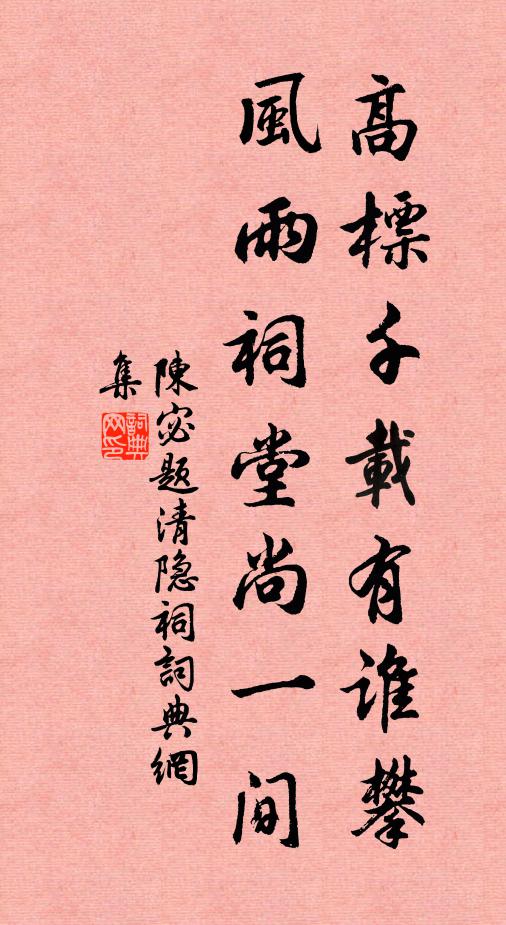 高標千載有谁攀
風雨祠堂尚一间
陳宓題清隐祠詞典網
集
詞典网印